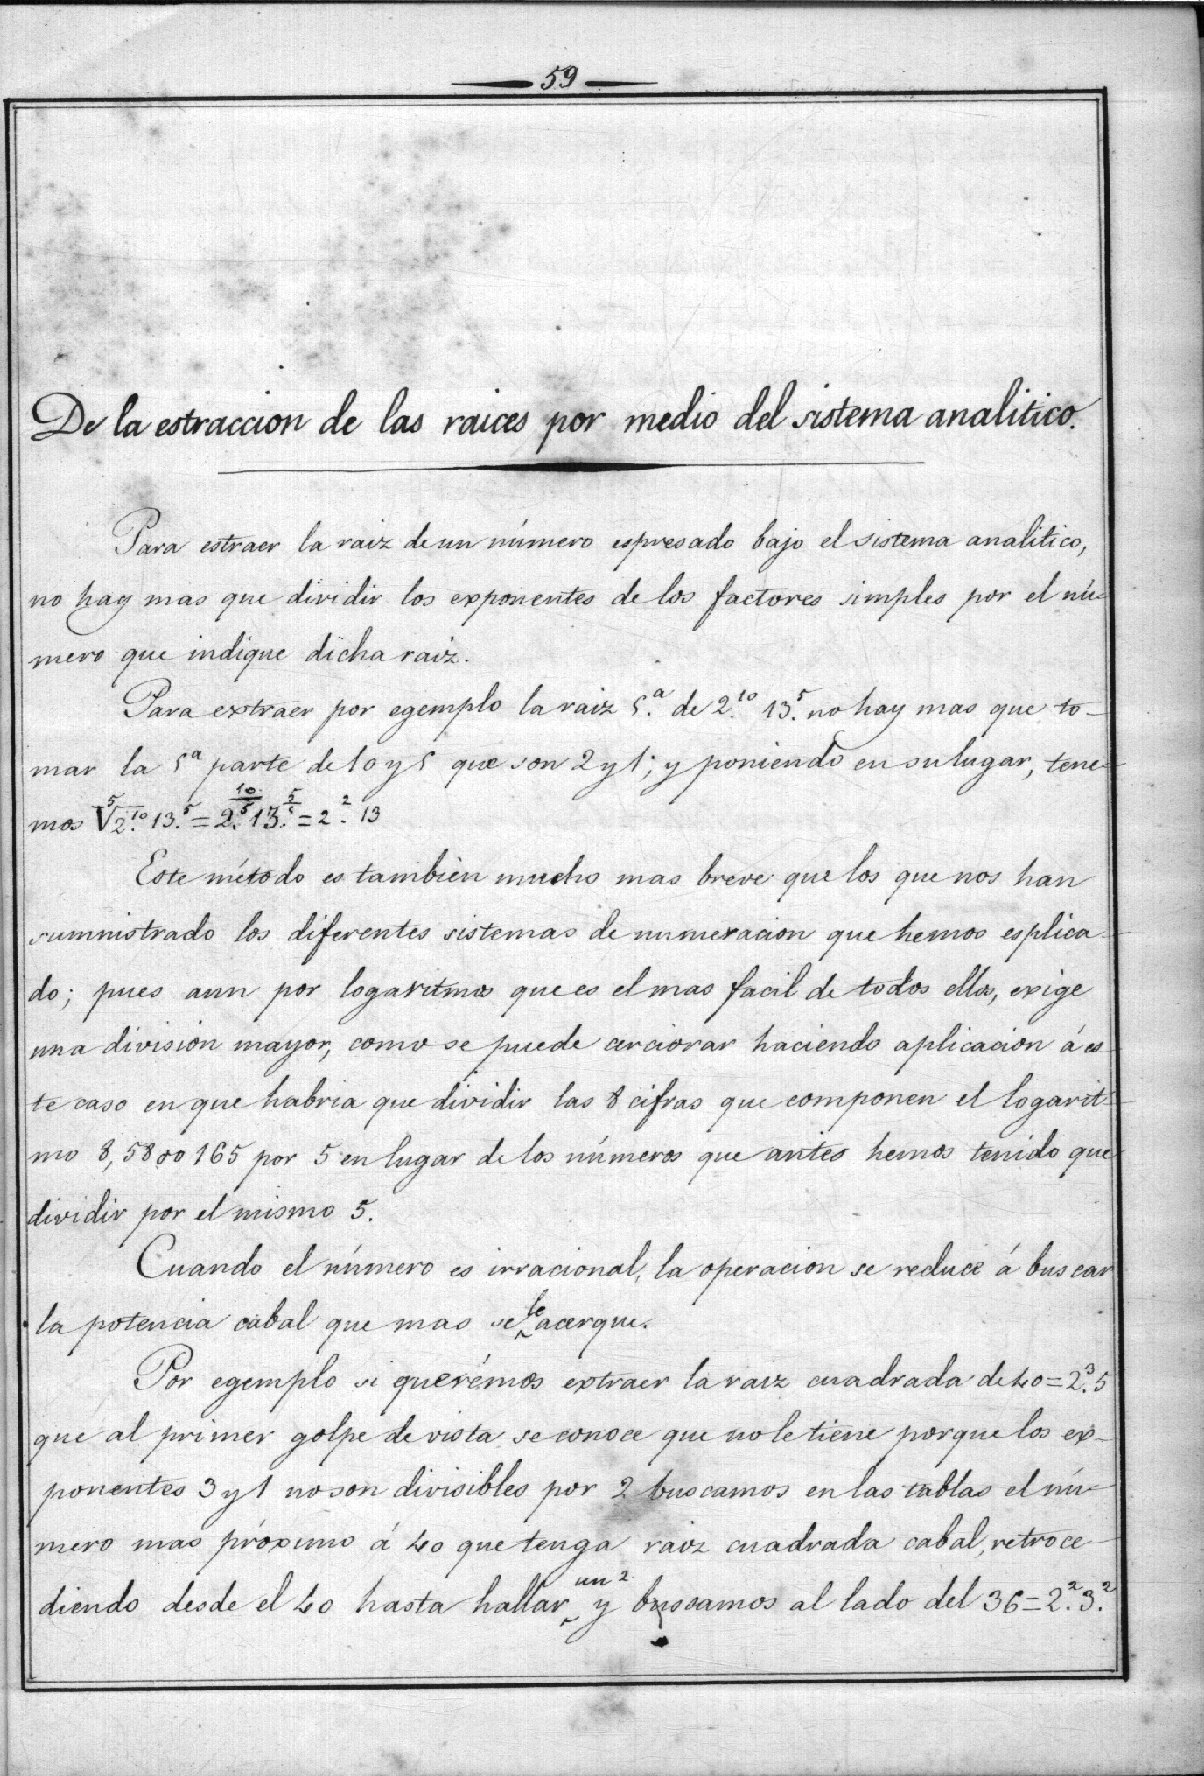 59
De la estraccion de las raices por medio del sistema analitico.
Para estraer la raiz de un número espresado bajo el sistema analitico,
no hay mas que dividir los exponentes de los factores simples por el nú-
mero que indique dicha raiz.
Para extraer por egemplo la raiz 5.ª de 2.¹⁰ 13.⁵ no hay mas que to-
mar la 5ª parte de 10 y 5 que son 2 y 1; y poniendo en su lugar, tene-
mos ⁵√2.¹⁰ 13.⁵ = 2.^(10/5) 13.^(5/5) = 2.² 13
Este método es tambièn mucho mas breve que los que nos han
sumnistrado los diferentes sistemas de numeracion que hemos esplica-
do; pues aun por logaritmos que es el mas facil de todos ellos, exige
una división mayor, como se puede cerciorar haciendo aplicación á es-
te caso en que habria que dividir las 8 cifras que componen el logarit-
mo 8,58 165 por 5 en lugar de los números que antes hemos tenido que
dividir por el mismo 5.
Cuando el número es irracional, la operacion se reduce á buscar
la potencia cabal que mas se le acerque.
Por egemplo si querémos extraer la raiz cuadrada de 40 = 2.³ 5
que al primer golpe de vista se conoce que no le tiene porque los ex-
ponentes 3 y 1 no son divisibles por 2 buscamos en las tablas el nú-
mero mas próximo á 40 que tenga raiz cuadrada cabal, retroce-
diendo desde el 40 hasta hallar un 2 y buscamos al lado del 36 = 2.² 3.²